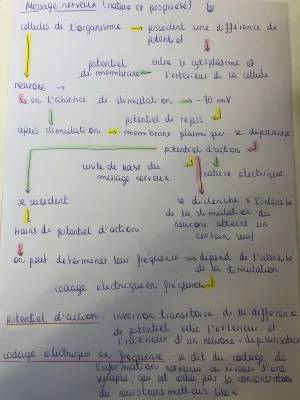 Message nerveux (nature et propriété)
cellules de l'organisme → possèdent une différence de potentiel
potentiel de membrane ← entre le cytoplasme et l'extérieur de la cellule
neurone →
en l'absence de stimulation → -70 mV
potentiel de repos
après stimulation → membrane plasmique se dépolarise
potentiel d'action
unité de base du message nerveux
nature électrique
se succèdent
se déclenche si l'intensité
de la stimulation du
neurone atteint un
certain seuil
trains de potentiel d'action
on peut déterminer leur fréquence → dépend de l'intensité
de la stimulation
codage électrique en fréquence
potentiel d'action : inversion transitoire de la différence
de potentiel entre l'extérieur et
l'intérieur d'un neurone = dépolarisation
codage électrique en fréquence : se dit du codage de
l'information nerveuse au niveau d'une
synapse, qui est codé par la concentration
de neurotransmetteurs libérés